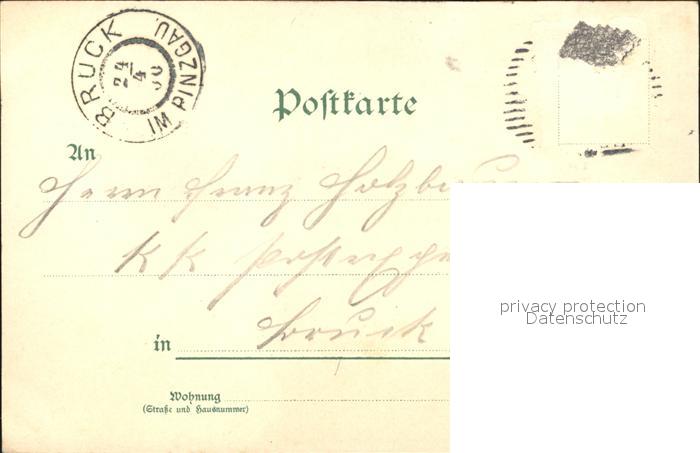 BRUCK IM PINZGAU.
24/4 00
Postkarte
An
Herrn Franz
privacy protection
Datenschutz
KK
in Bruck
Wohnung
(Straße und Hausnummer)